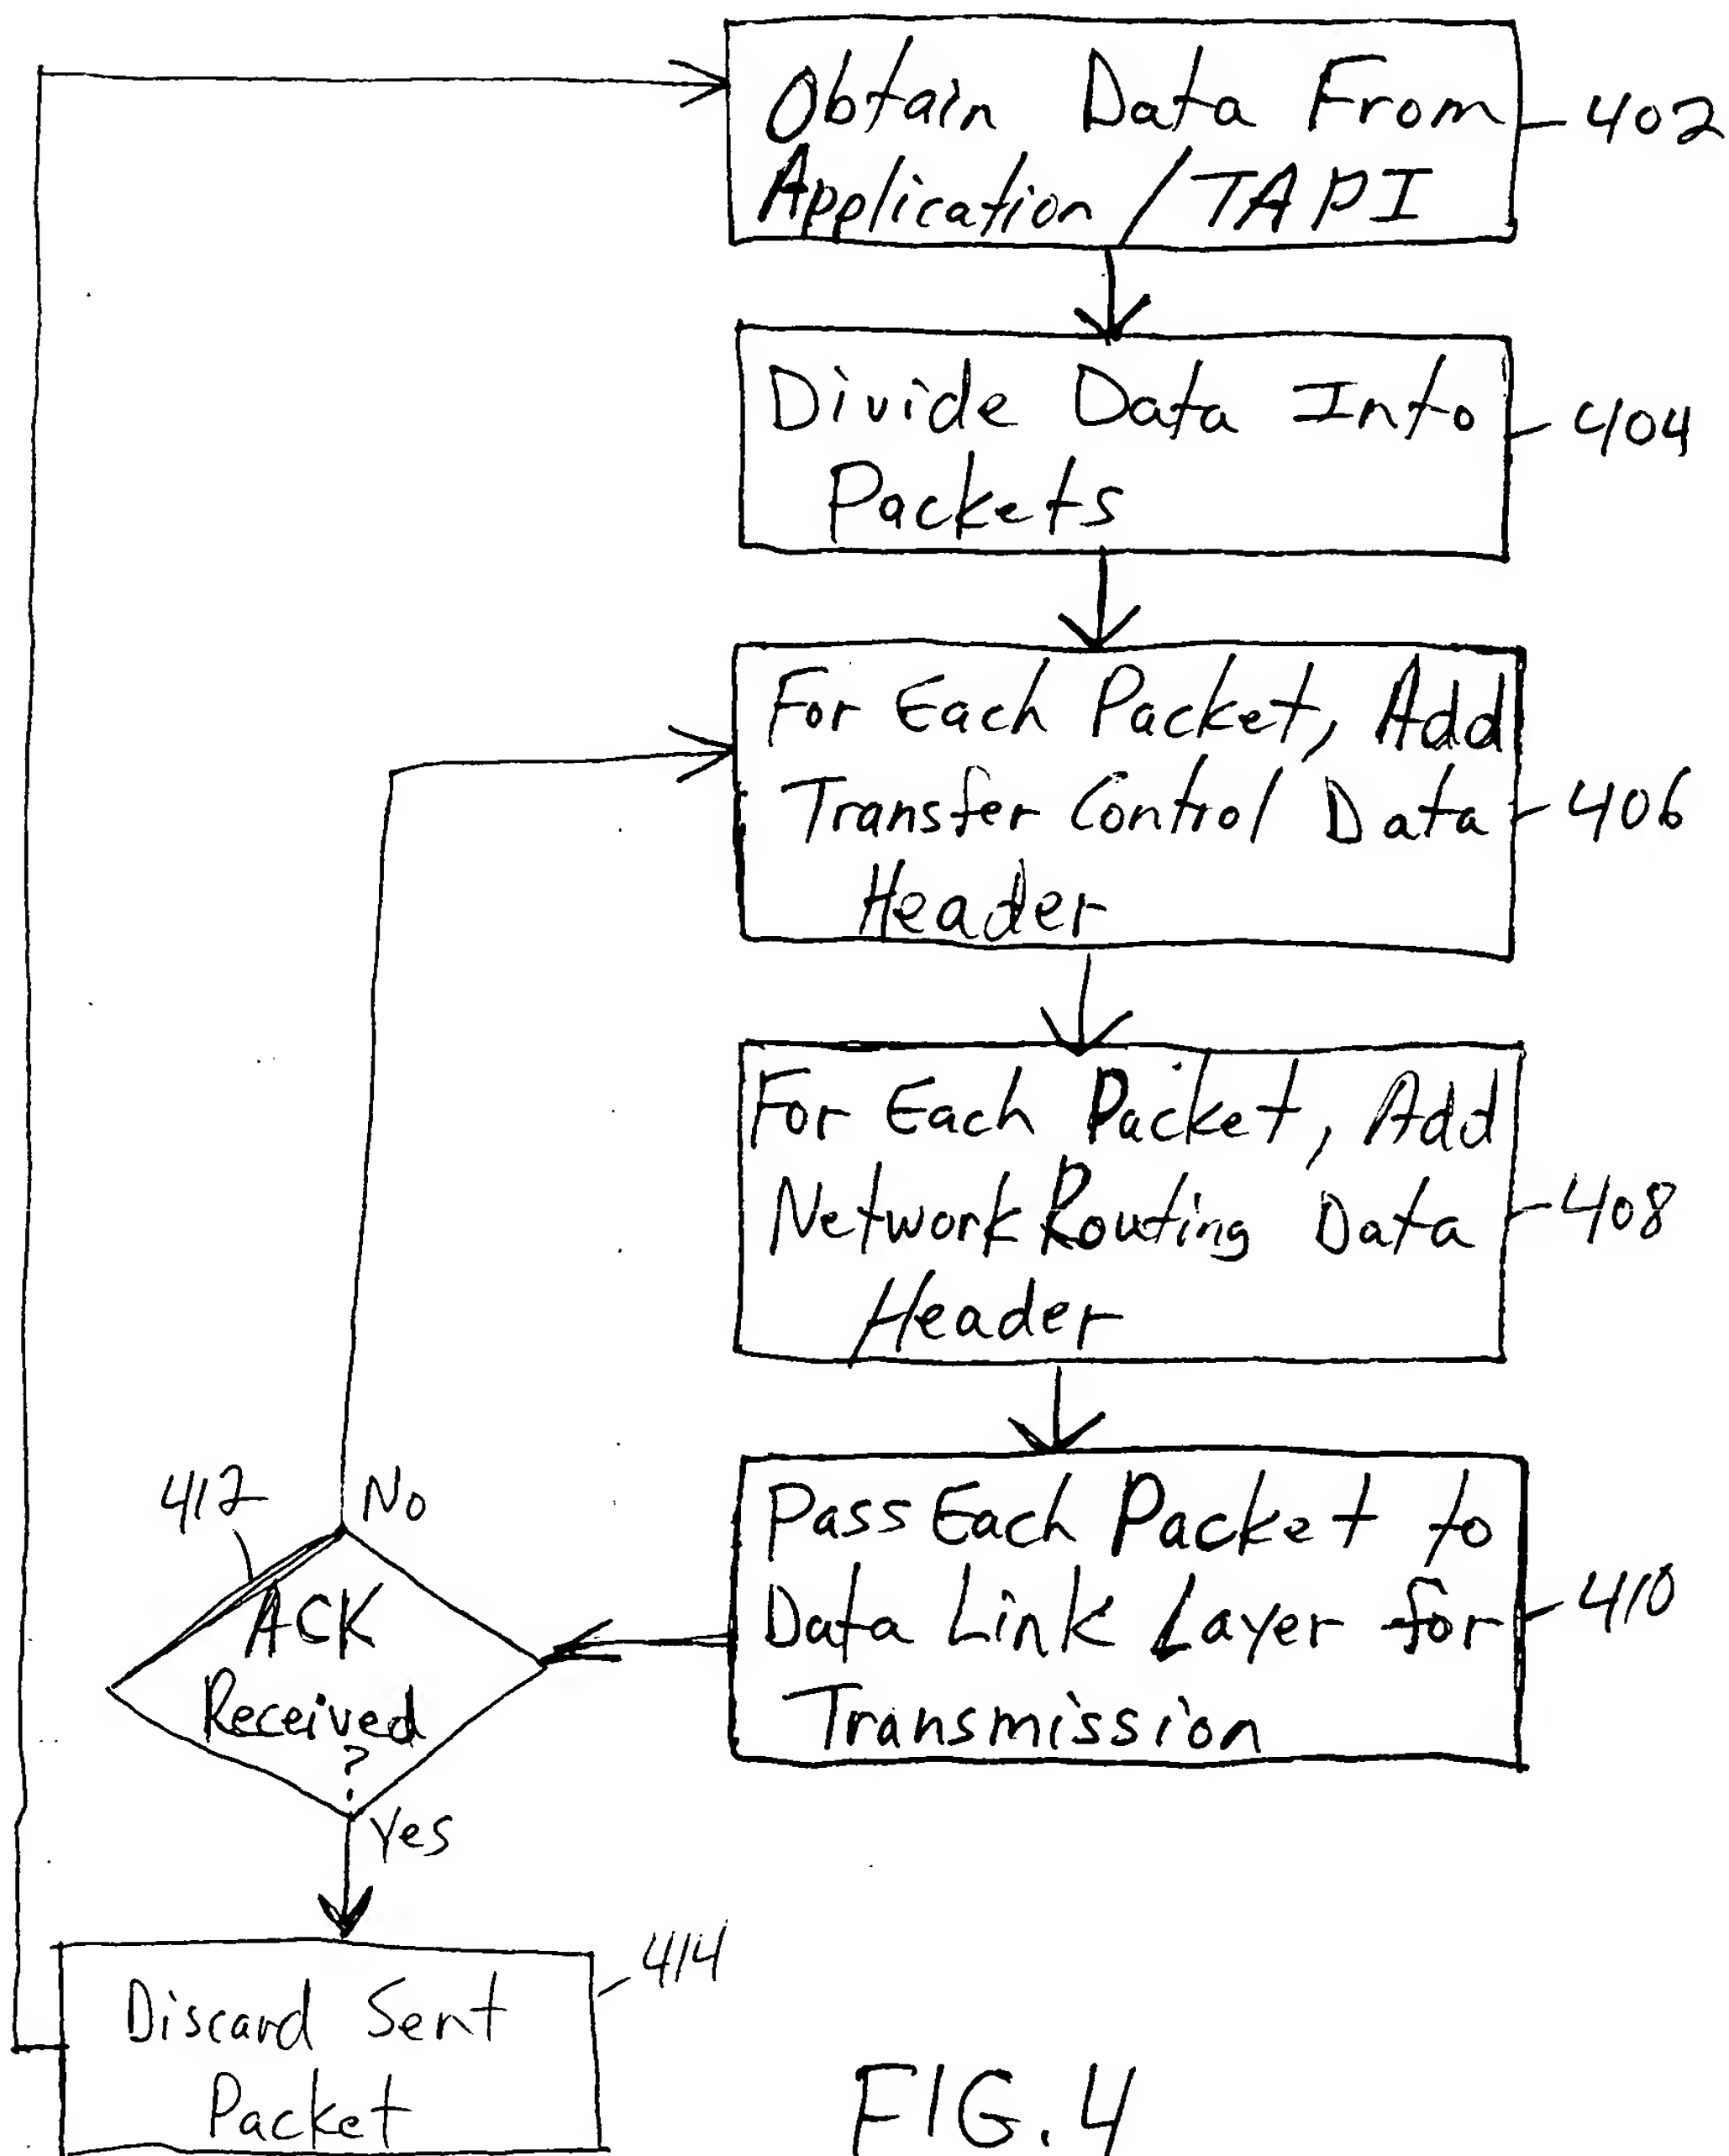 Obtain Data From
Application / TAPI
402
Divide Data Into
Packets
404
For Each Packet, Add
Transfer Control Data
Header
406
For Each Packet, Add
Network Routing Data
Header
408
Pass Each Packet to
Data Link Layer for
Transmission
410
412
No
ACK
Received
?
Yes
Discard Sent
Packet
414
FIG. 4